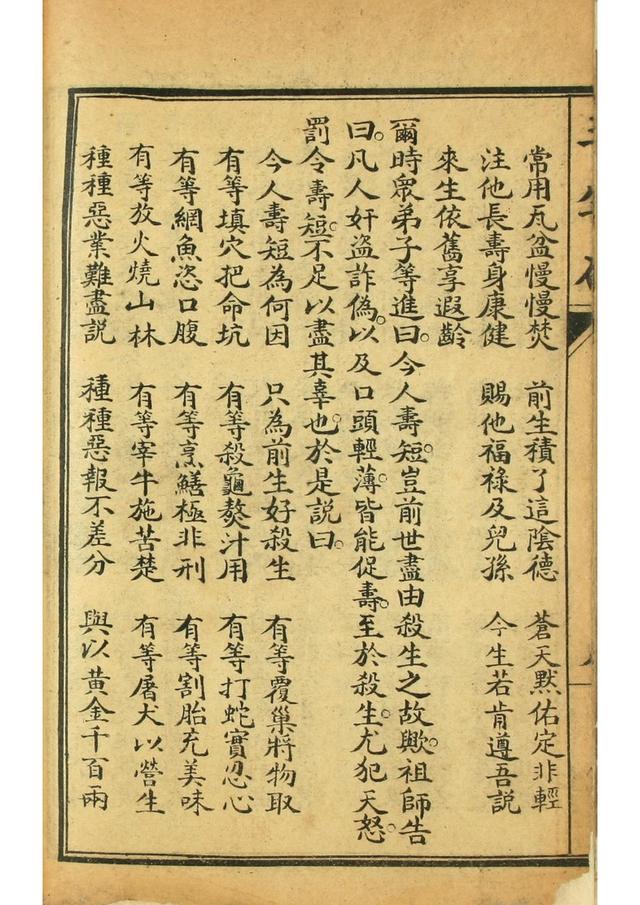 常用瓦盆慢慢焚 前生積了這陰德 蒼天默佑定非輕
注他長壽身康健 賜他福祿及兒孫 今生若肯遵吾說
來生依舊享遐齡
爾時眾弟子等進曰。今人壽短。豈前世盡由殺生之故歟。祖師告
曰。凡人奸盜詐偽。以及口頭輕薄。皆能促壽。至於殺生。尤犯天怒。
罰令壽短。不足以盡其辜也。於是說曰。
今人壽短為何因 只為前生好殺生 有等覆巢將物取
有等填穴把命坑 有等殺龜熬汁用 有等打蛇實忍心
有等網魚恣口腹 有等烹鱔極非刑 有等割胎充美味
有等放火燒山林 有等宰牛施苦楚 有等屠犬以營生
種種惡業難盡說 種種惡報不差分 與以黃金千百兩